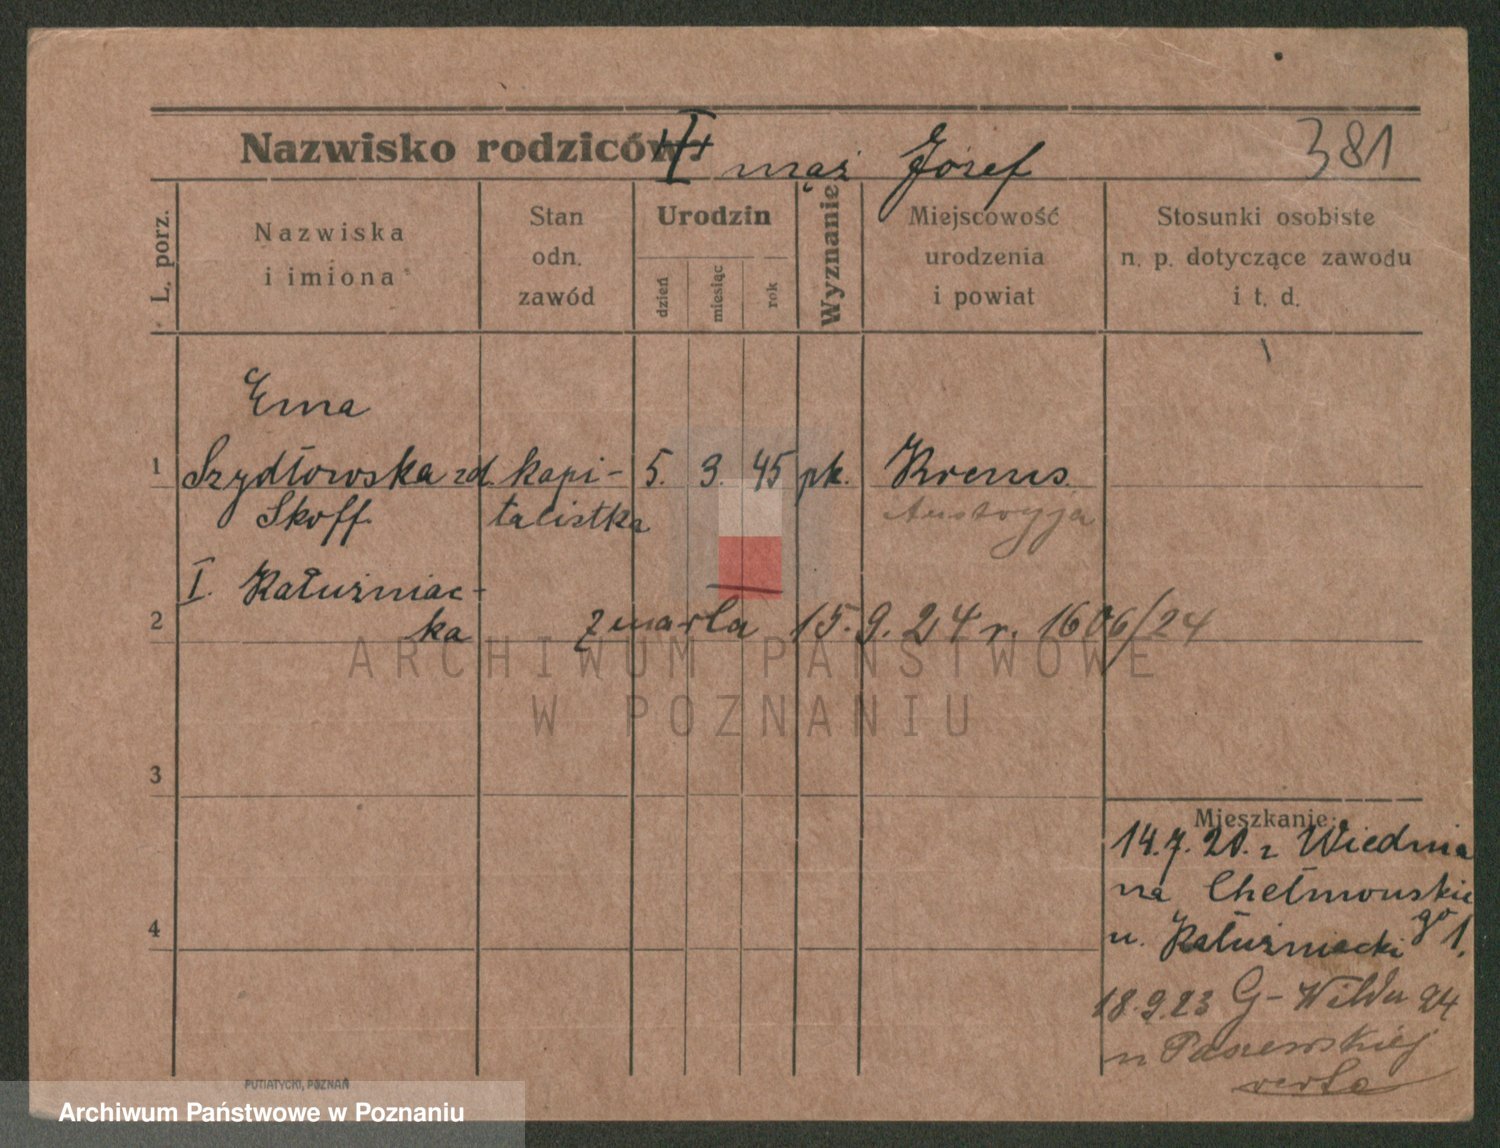 Nazwisko rodziców:
II mąż Józef 381
L. porz.
Nazwiska
i imiona
Stan
odn.
zawód
Urodzin
dzień
miesiąc
rok
Wyznanie
Miejscowość
urodzenia
i powiat
Stosunki osobiste
n. p. dotyczące zawodu
i t. d.
Ema
1 Szydłowska zd. kapi- 5. 3. 45 pk. Krems
Skoff talistka Austryja
I. Kałużniac-
2 ka zmarła 15.9.24 r. 1606/24
ARCHIWUM PAŃSTWOWE
W POZNANIU
3
Mieszkanie:
14.7.20. z Wiednia
na Chełmońskie
go 1.
4
u. Kałużniacki
18.9.23 G-Wilda 24
u Paszewskiej
PUTIATYCKI, POZNAŃ
Archiwum Państwowe w Poznaniu